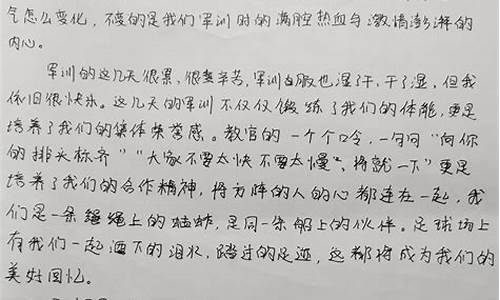 气怎么变化，不变的是我们军训时的满腔热血与激情澎湃的
内心。
军训的这几天很累、很辛苦，军训服也湿了干，干了湿，但我
依旧很快乐。这几天的军训不仅仅锻炼了我们的体能，更是
培养了我们的集体荣誉感。教官的一个个口令，一句句“向你
的排头标齐”“大家不要太快不要太慢”、将就一下”更是
培养了我们的合作精神，将方阵的人的心都连在一起，我
们是一条绳上的蚂蚱，是同一条船上的伙伴。足球场上
有我们一起洒下的泪水，踏过的足迹，这都将成为我们的
美好回忆。